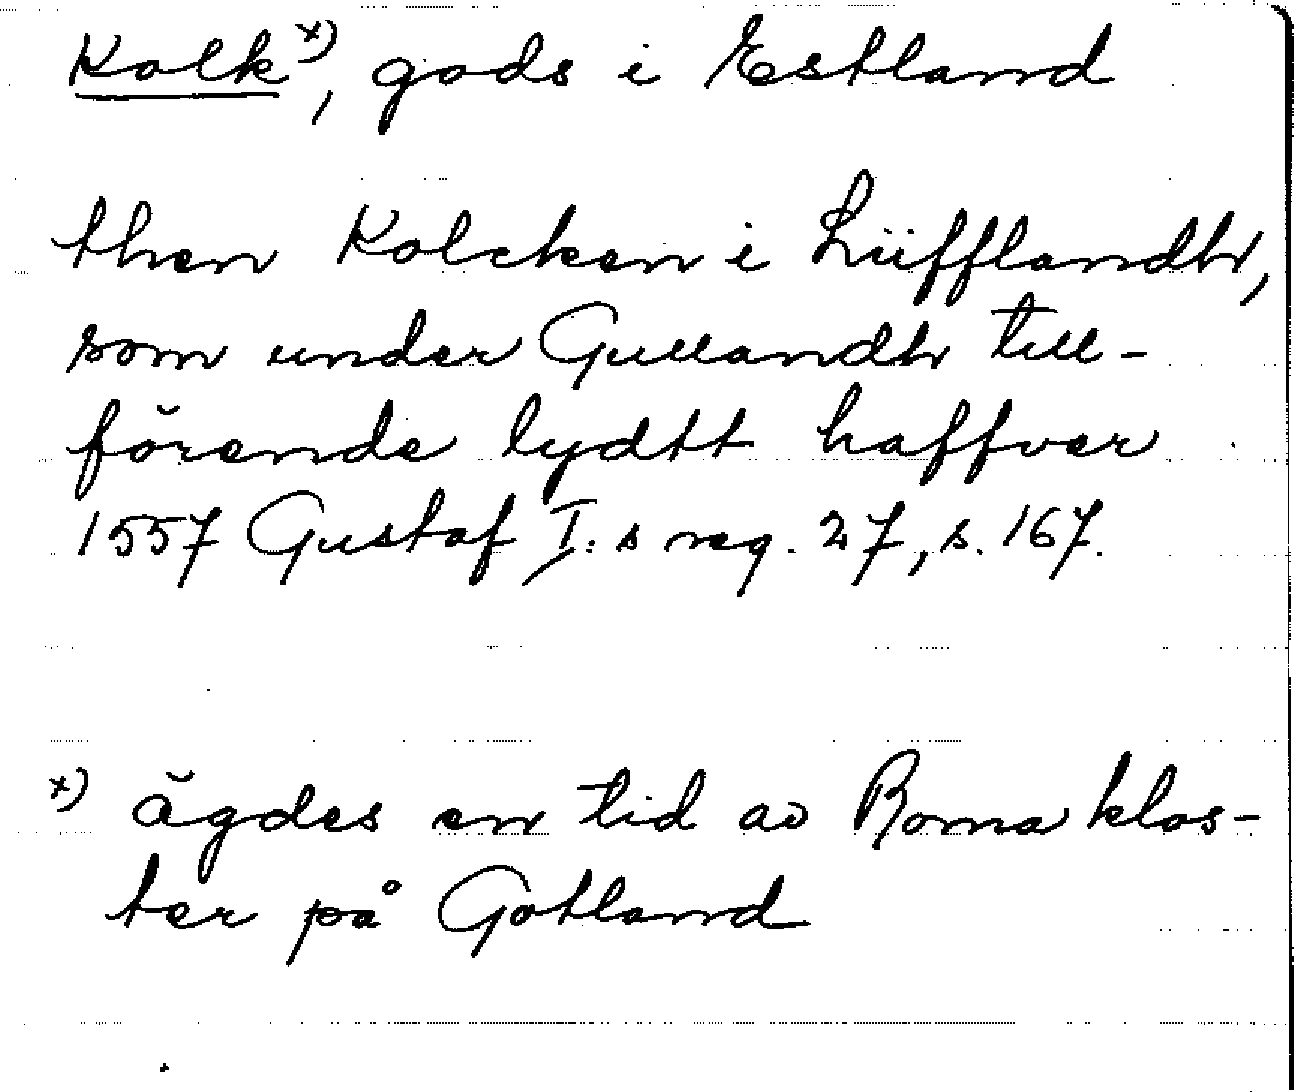 Kolk x), gods i Estland
then Kolcken i Lüfflandh,
som under Gullandh till-
förende lydtt haffver
1557 Gustaf I:s reg. 27, s. 167.
x) ägdes en tid av Roma klos-
ter på Gotland